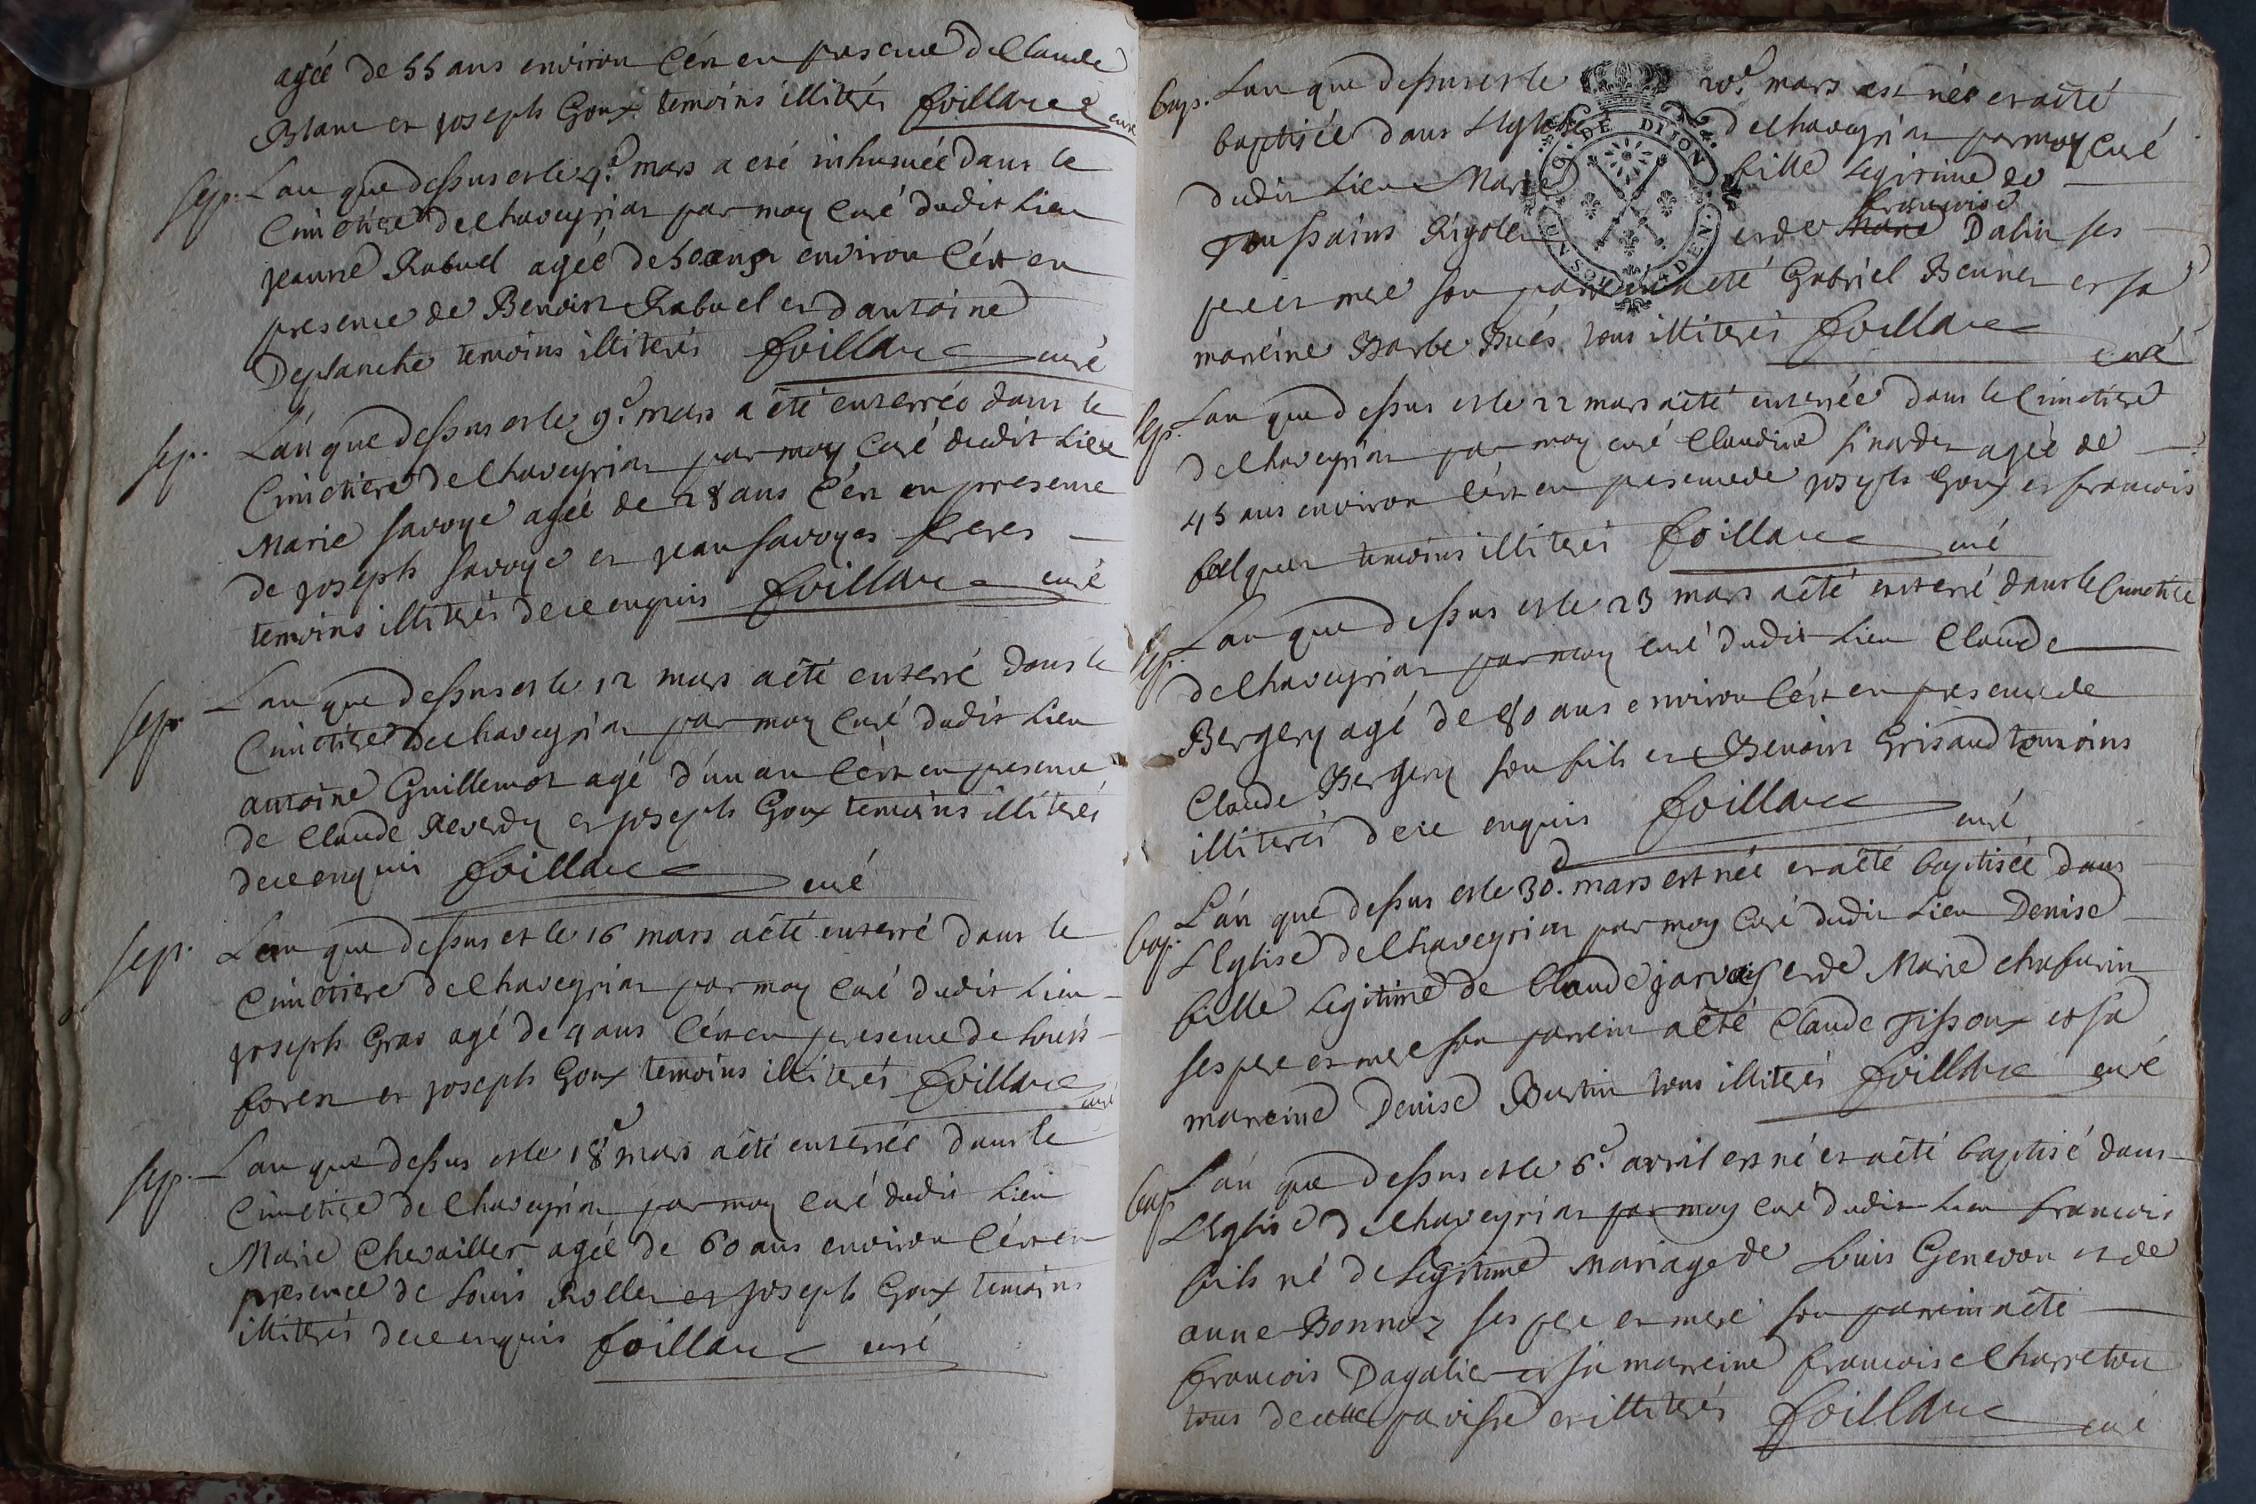 agée de 55 ans environ C'ést en presence de Claude
Blanc et joseph Goux temoins illiterés foillard curé
sep. L'an que dessus et le 4.e mars a eté inhumée dans le
Cimetiere de Chaveyriat par moy Curé dudit Lieu
jeanne Rabuel agée de 50 ans environ C'ést en
presence de Benoist Rabuel et d'antoine
Deplanche temoins illiterés foillard curé
sep. L'an que dessus et le 9.e mars a eté enterrée dans le
Cimetiere de Chaveyriat par moy Curé dudit Lieu
Marie Savoye agée de 28 ans C'ést en presence
de joseph Savoye et jean Savoyes freres
temoins illiterés de ce enquis foillard curé
sep. L'an que dessus et le 12 mars a eté enterré dans le
Cimetiere de Chaveyriat par moy Curé dudit Lieu
antoine Guillemot agé d'un an C'ést en presence
de Claude Reverdy et joseph Goux temoins illiterés
de ce enquis foillard curé
sep. L'an que dessus et le 16 mars a eté enterré dans le
Cimetiere de Chaveyriat par moy Curé dudit Lieu
joseph Gras agé de 4 ans C'ést en presence de Louis
foret et joseph Goux temoins illiterés foillard curé
sep. L'an que dessus et le 18.e mars a eté enterrée dans le
Cimetiere de Chaveyriat par moy Curé dudit Lieu
Marie Chevailler agée de 60 ans environ C'ést en
presence de Louis Rollet et joseph Goux temoins
illiterés de ce enquis foillard curé
bap. L'an que dessus et le 20.e mars est née et a eté
baptisée dans L'Eglise de Chaveyriat par moy Curé
dudit Lieu Marie fille Legitime de
françoise
Toussaint Rigolet et de Marie Dalin ses
pere et mere son parrein a eté Gabriel Beunet et sa
marreine Barbe Bués tous illiterés foillard curé
G. DE DIJON
sep. L'an que dessus et le 22 mars a eté enterrée dans le Cimetiere
de Chaveyriat par moy curé Claudine Sinardet agée de
45 ans environ C'ést en presence de joseph Goux et françois
temoins illiterés foillard curé
sep. L'an que dessus et le 23 mars a eté enterré dans le Cimetiere
de Chaveyriat par moy curé dudit Lieu Claude
Bergery agé de 80 ans environ C'ést en presence de
Claude Bergery son fils et Benoist Grisaud temoins
illiterés de ce enquis foillard curé
bap. L'an que dessus et le 30.e mars est née et a eté baptisée dans
L'Eglise de Chaveyriat par moy Curé dudit Lieu Denise
fille Legitime de Claude jarvay et de Marie chafurin
ses pere et mere son parrein a eté Claude Tissoux et sa
marreine Denise Burtin tous illiterés foillard curé
bap. L'an que dessus et le 6.e avril est né et a eté baptisé dans
L'Eglise de Chaveyriat par moy Curé dudit Lieu françois
fils né de Legitime Mariage de Louis Genevon et de
anne Bonnoz ses pere et mere son parrein a eté
françois Dagalier et sa marreine francoise Charreton
tous de cette paroisse et illiterés foillard curé